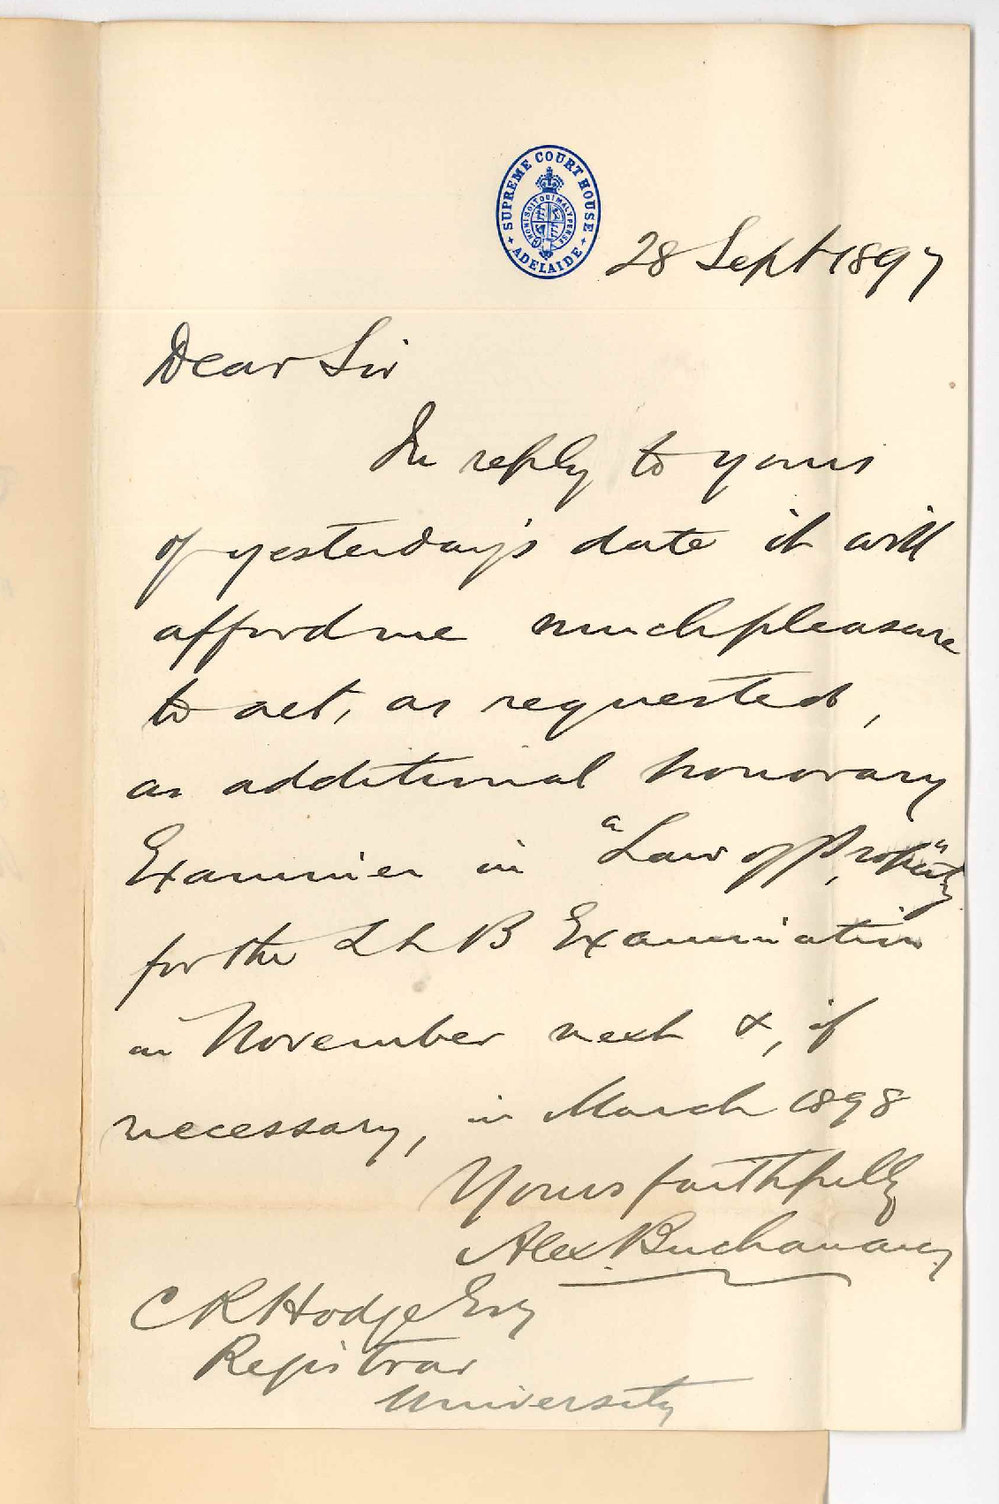 SUPREME COURT HOUSE
ADELAIDE
HONI SOIT QUI MAL Y PENSE
28 Sept 1897
Dear Sir
In reply to yours
of yesterday's date it will
afford me much pleasure
to act, as requested,
as additional honorary
Examiner in "Law of Property"
for the LLB Examination
in November next &, if
necessary, in March 1898
Yours faithfully
Alex. Buchanan
C R Hodge Esq
Registrar
University